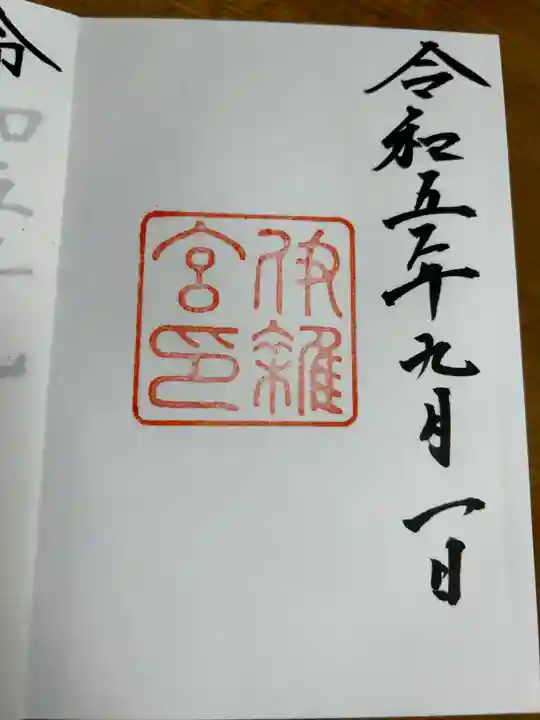 令和五年九月一日
伊雜
宮印
令